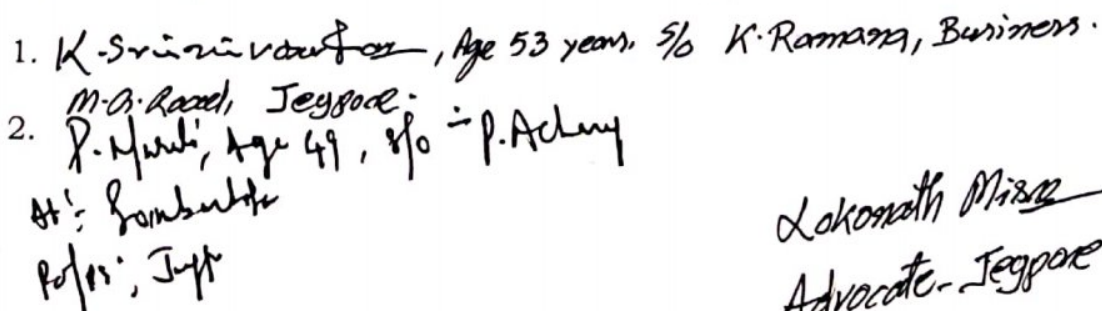 1. K. Srinivasa Rao, Age 53 years. S/o K. Ramana, Business.
M.G. Road, Jeypore.
2. P. Murali, Age 49, S/o :- P. Achary
At :-
Po/Ps :, Jeypore
Lokonath Misra
Advocate - Jeypore